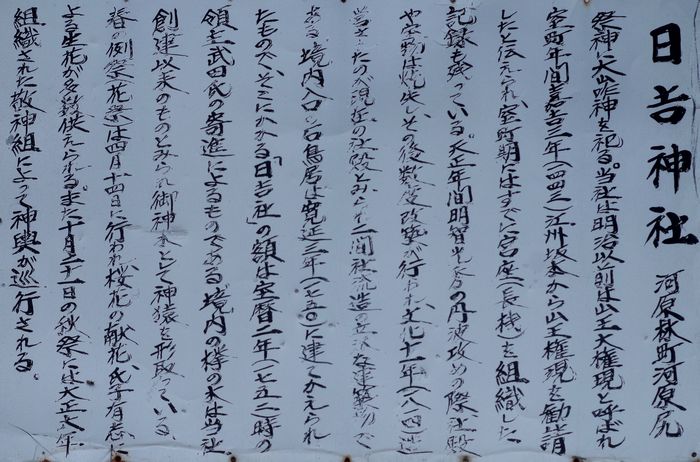 日吉神社 河原林町河原尻
祭神に大山咋神を祀る。当社は明治以前は山王大権現と呼ばれ
室町年間嘉吉三年(一四四三)江州坂本から山王権現を勧請
したと伝えられ、室町期にはすでに宮座(長機)を組織した
記録も残っている。天正年間明智光秀の丹波攻めの際社殿
や宝物は焼失し、その後数度改築が行われ、文化十一年(一八一四)造
営されたのが現在の社殿とみられ一間社流造の立派な建築物で
ある。境内入口の石鳥居は寛延三年(一七五〇)に建てかえられ
たもので、そこにかかる「日吉社」の額は宝暦二年(一七五二)時の
領主武田氏の寄進によるものである。境内の欅の木は当社
創建以来のものとみられ御神木として神猿を形取っている。
春の例祭(花祭)は四月十四日に行われ桜花の献花、氏子有志に
よる生花が多数供えられる。また十月二十一日の秋祭には大正五年
組織された敬神組によって神輿が巡行される。